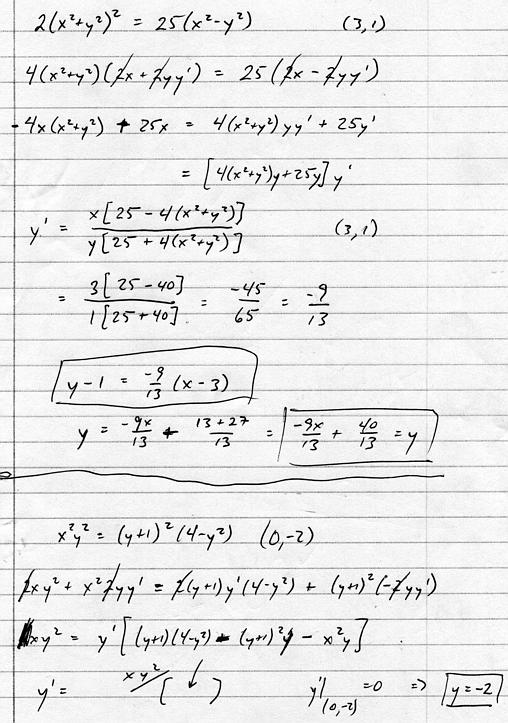 2(x²+y²)² = 25(x²-y²) (3,1)
4(x²+y²)(2x+2yy') = 25(2x-2yy')
-4x(x²+y²) + 25x = 4(x²+y²)yy' + 25y'
= [4(x²+y²)y+25y] y'
y' = x[25-4(x²+y²)] / y[25+4(x²+y²)] (3,1)
= 3[25-40] / 1[25+40] = -45/65 = -9/13
y-1 = -9/13 (x-3)
y = -9x/13 + 13+27/13 = -9x/13 + 40/13 = y
x²y² = (y+1)²(4-y²) (0,-2)
2xy² + x²2yy' = 2(y+1)y'(4-y²) + (y+1)²(-2yy')
xy² = y'[(y+1)(4-y²) - (y+1)²y - x²y]
y' = xy² / [↓] y'|(0,-2) = 0 => y=-2